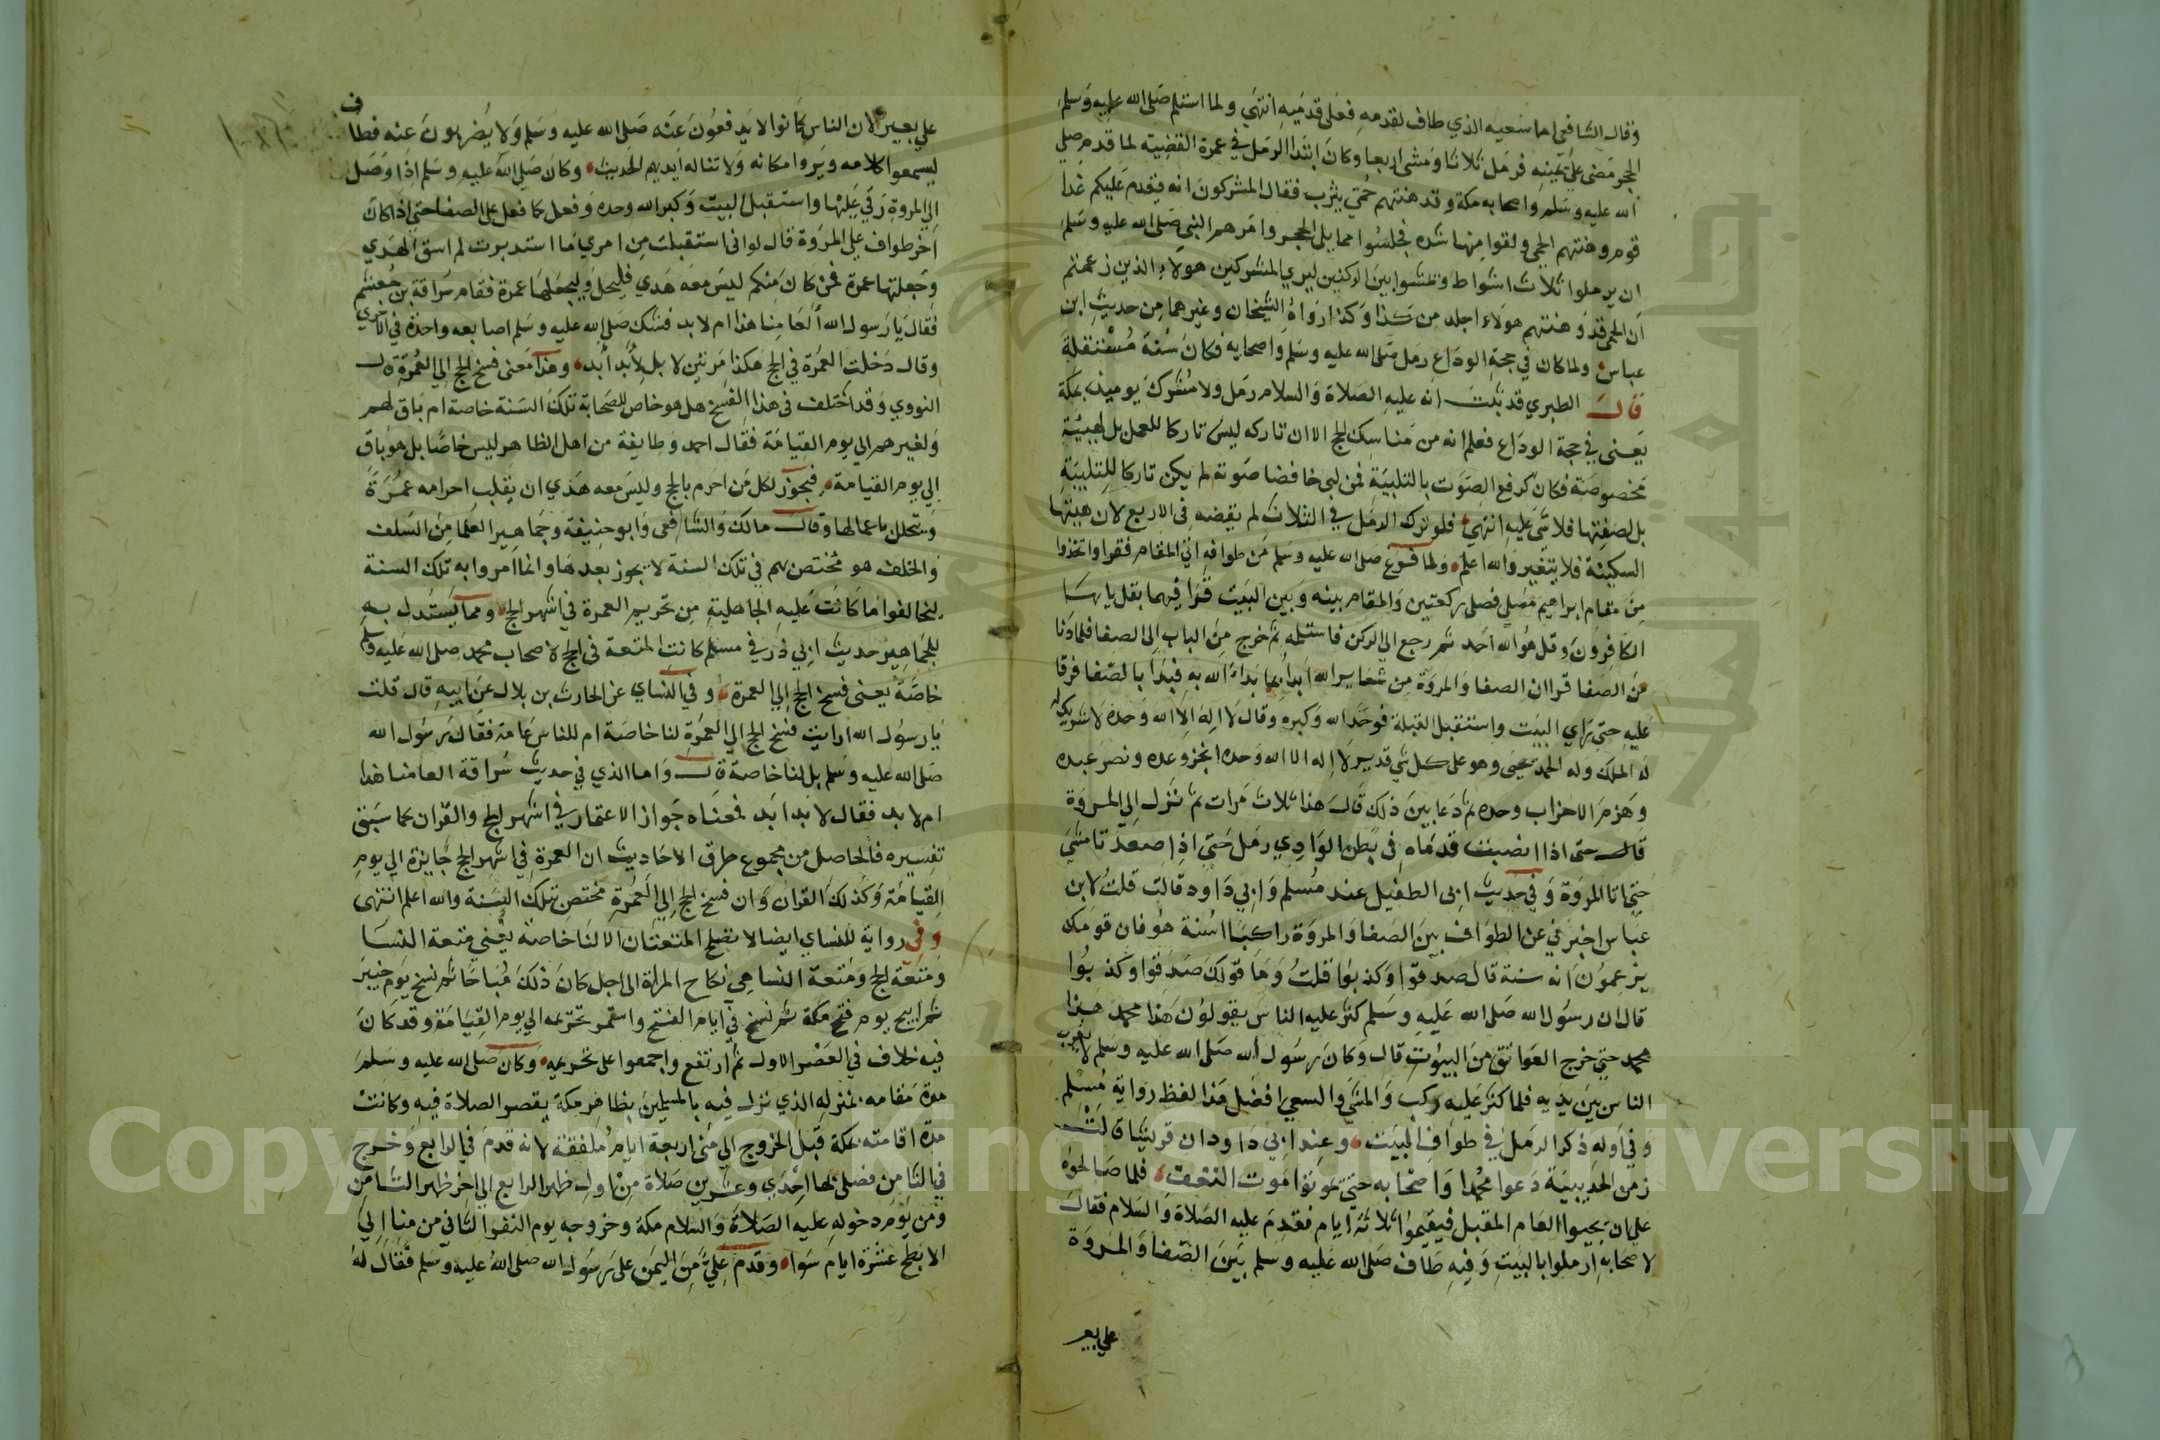 وقال الشافعي اما سعيه الذي طاف لقدمه فعلى قدميه انتهي ولما استلم صلى الله عليه وسلم
الحجر مضى على يمينه فرمل ثلاثا ومشى اربعا وكان ابتدا الرمل في عمرة القضية لما قدم صلى
الله عليه وسلم واصحابه مكة وقد هنتهم حمي يثرب فقال المشركون انه يقدم عليكم غدا
قوم وهنتهم الحمي ولقوا منها شده فجلسوا مما يلى الحجر وامرهم النبي صلى الله عليه وسلم
ان يرملوا ثلاث اشواط ويمشوا بين الركنين ليري المشركين هولاء الذين زعمتم
ان الحمى قد وهنتهم هولاء اجلد من كذا وكذا رواه الشيخان وغيرهما من حديث ابن
عباس ولما كان في حجة الوداع رمل صلى الله عليه وسلم واصحابه فكان سنة مستقلة
قال الطبري قد ثبت انه عليه الصلاة والسلام رمل ولا مشرك يوميذ بمكة
يعنى في حجة الوداع فعلم انه من مناسك الحج الا ان تاركه ليس تاركا للعمل بل لهيئة
مخصوصة فكان كرفع الصوت بالتلبية فمن لبى خافضا صوته لم يكن تاركا للتلبية
بل لصفتها فلا شي عليه انتهي فلو ترك الرمل في الثلاث لم يقضه فى الاربع لان هيئتها
السكينة فلا يتغير والله اعلم ولما فرغ صلى الله عليه وسلم من طوافه اتي المقام فقرا واتخذوا
من مقام ابراهيم مصلى فصلى ركعتين والمقام بينه وبين البيت فقرا فيهما بقل يا ايها
الكافرون وقل هو الله احد ثم رجع الى الركن فاستلمه ثم خرج من الباب الى الصفا فلما دنا
من الصفا قرا ان الصفا والمروة من شعاير الله ابدا بما بدا الله به فبدا بالصفا فرقا
عليه حتى راي البيت واستقبل القبلة فوحد الله وكبره وقال لا اله الا الله وحده لا شريك له
له الملك وله الحمد وهو على كل شي قدير لا اله الا الله وحده انجز وعده ونصر عبده
وهزم الاحزاب وحده ثم دعا بين ذلك قال هذا ثلاث مرات ثم نزل الى المروة
قال حتى اذا انصبت قدماه فى بطن الوادي رمل حتى اذا صعدتا مشى
حتى اتا المروة وفي حديث ابى الطفيل عند مسلم وابي داود قال قلت لابن
عباس اخبرني عن الطواف بين الصفا والمروة راكبا اسنة هو فان قومك
يزعمون انه سنة قال صدقوا وكذبوا قلت وما قولك صدقوا وكذبوا
قال ان رسول الله صلى الله عليه وسلم كثر عليه الناس يقولون هذا محمد هذا
محمد حتى خرج العواتق من البيوت قال وكان رسول الله صلى الله عليه وسلم لا يضرب
الناس بين يديه فلما كثر عليه ركب والمشى والسعي افضل هذا لفظ رواية مسلم
وفي اوله ذكر الرمل في طواف البيت وعند ابي داود ان قريشا قالت
زمن الحديبية دعوا محمدا واصحابه حتى يموتوا موت النغف فلما صالحوه
على ان يجيوا العام المقبل فيقيموا ثلاثة ايام فقدم عليه الصلاة والسلام فقال
لاصحابه ارملوا بالبيت وفيه طاف صلى الله عليه وسلم بين الصفا والمروة
على بعير
على بعير لان الناس كانوا لا يدفعون عنه صلى الله عليه وسلم ولا يضربون عنه فطاف
ليسمعوا كلامه ويروا مكانه ولا تناله ايديهم الحديث وكان صلى الله عليه وسلم اذا وصل
الى المروة رقي عليها واستقبل البيت وكبر الله وحده وفعل كما فعل على الصفا حتى اذا كان
اخر طواف على المروة قال لو انى استقبلت من امري ما استدبرت لم اسق الهدي
وجعلتها عمرة فمن كان منكم ليس معه هدي فليحل وليجعلها عمرة فقام سراقة بن جعشم
فقال يا رسول الله العامنا هذا ام لابد فشبك صلى الله عليه وسلم اصابعه واحدة في الاخري
وقال دخلت العمرة في الحج هكذا مرتين لا بل لابد ابد وهذا معنى فسخ الحج الى العمرة قال
النووي وقد اختلف فى هذا الفسخ هل هو خاص للصحابة تلك السنة خاصة ام باق لهم
ولغيرهم الى يوم القيامة فقال احمد وطايفة من اهل الظاهر ليس خاصا بل هو باق
الى يوم القيامة فيجوز لكل من احرم بالحج وليس معه هدي ان يقلب احرامه عمرة
ويتحلل باعمالها وقال مالك والشافعى وابو حنيفة وجماهير العلما من السلف
والخلف هو مختص بهم في تلك السنة لا يجوز بعدها وانما امروا به تلك السنة
ليخالفوا ما كانت عليه الجاهلية من تحريم العمرة في اشهر الحج ومما يستدل به
للجماهير حديث ابي ذر في مسلم كانت المتعة فى الحج لاصحاب محمد صلى الله عليه وسلم
خاصة يعنى فسخ الحج الى العمرة وفي النساي عن الحارث بن بلال عن ابيه قال قلت
يا رسول الله ارايت فسخ الحج الى العمرة لنا خاصة ام للناس عامة فقال رسول الله
صلى الله عليه وسلم بل لنا خاصة قال واما الذي في حديث سراقة العامنا هذا
ام لابد فقال لابد ابد فمعناه جواز الاعتمار في اشهر الحج والقران كما سبق
تفسيره فالحاصل من مجموع طرق الاحاديث ان العمرة في اشهر الحج جايزة الى يوم
القيامة وكذلك القران وان فسخ الحج الى العمرة مختص بتلك السنة والله اعلم انتهى
وفي رواية للنساي ايضا لا تصلح المتعتان الا لنا خاصة يعني متعة النسا
ومتعة الحج ومتعة النسا هى نكاح المراة الى اجل كان ذلك مباحا ثم نسخ يوم خيبر
ثم ابيح يوم فتح مكة ثم نسخ في ايام الفتح واستمر تحريمه الى يوم القيامة وقد كان
فيه خلاف في العصر الاول ثم ارتفع واجمعوا على تحريمه وكان صلى الله عليه وسلم
مدة مقامه بمنزله الذي نزل فيه بالمسلمين بظاهر مكة يقصر الصلاة فيه وكانت
مدة اقامته بمكة قبل الخروج الى منى اربعة ايام ملفقة لانه قدم في الرابع وخرج
في الثامن فصلى بها احدي وعشرين صلاة من اول ظهر الرابع الى اخر ظهر الثامن
ومن يوم دخوله عليه الصلاة والسلام مكة وخروجه يوم النفر الثانى من منا الى
الابطح عشرة ايام سوا وقدم علي من اليمن على رسول الله صلى الله عليه وسلم فقال له
Copyright © King Saud University
جامعة الملك سعود